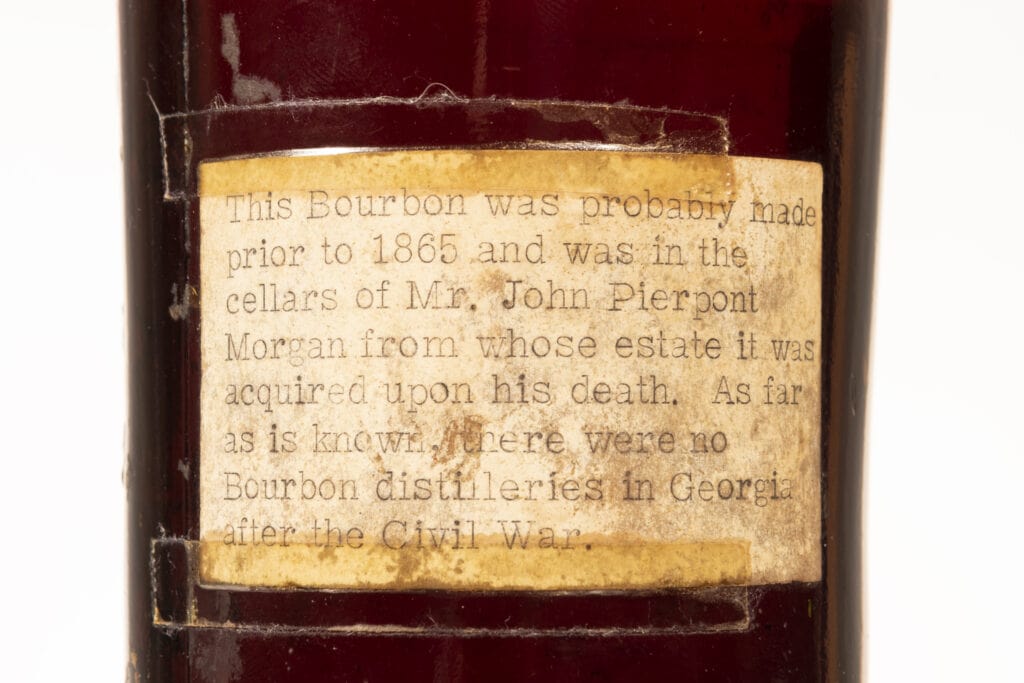 This Bourbon was probably made
prior to 1865 and was in the
cellars of Mr. John Pierpont
Morgan from whose estate it was
acquired upon his death. As far
as is known, there were no
Bourbon distilleries in Georgia
after the Civil War.